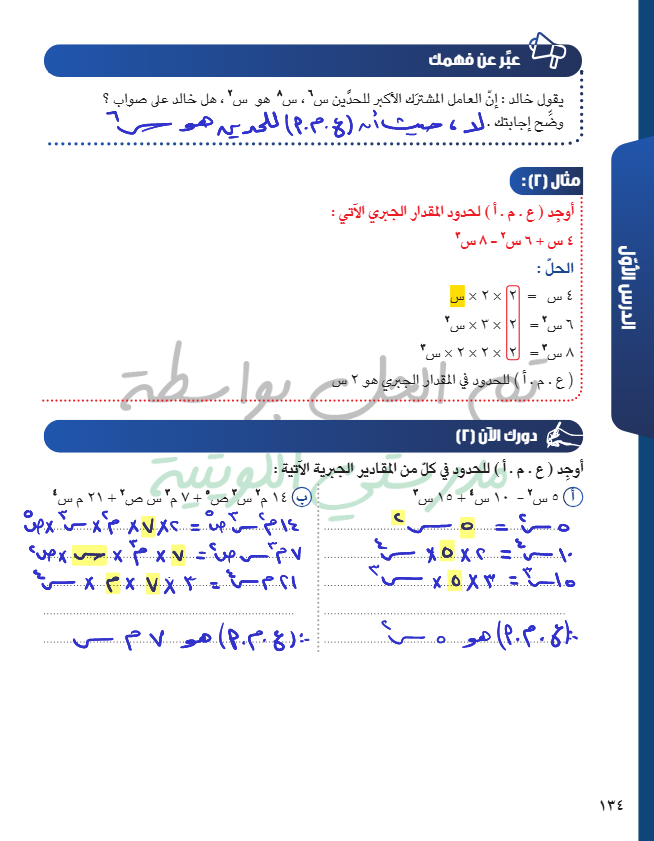 عبّر عن فهمك
يقول خالد : إنّ العامل المشترك الأكبر للحدَّين س⁶ ، س⁸ هو س² ، هل خالد على صواب ؟
وضّح إجابتك . لا ، حيث أن (ع . م . أ) للحدين هو س⁶
مثال (٢) :
أوجد ( ع . م . أ ) لحدود المقدار الجبري الآتي :
٤ س + ٦ س² − ٨ س³
الحلّ :
٤ س = ٢ × ٢ × س
٦ س² = ٢ × ٣ × س²
٨ س³ = ٢ × ٢ × ٢ × س³
( ع . م . أ ) للحدود في المقدار الجبري هو ٢ س
تم الحل بواسطة
دورك الآن (٢)
مدرستي الكويتية
أوجد ( ع . م . أ ) للحدود في كلّ من المقادير الجبرية الآتية :
أ ٥ س² − ١٠ س⁴ + ١٥ س³
٥ س² = ٥ س²
١٠ س⁴ = ٢ × ٥ × س⁴
١٥ س³ = ٣ × ٥ × س³
∴ (ع . م . أ) هو ٥ س²
ب ١٤ م² س³ ص⁵ + ٧ م³ س ص² + ٢١ م س⁴
١٤ م² س³ ص⁵ = ٢ × ٧ × م² × س³ × ص⁵
٧ م³ س ص² = ٧ × م³ × س × ص²
٢١ م س⁴ = ٣ × ٧ × م × س⁴
∴ (ع . م . أ) هو ٧ م س
الدرس الأوّل
١٣٤